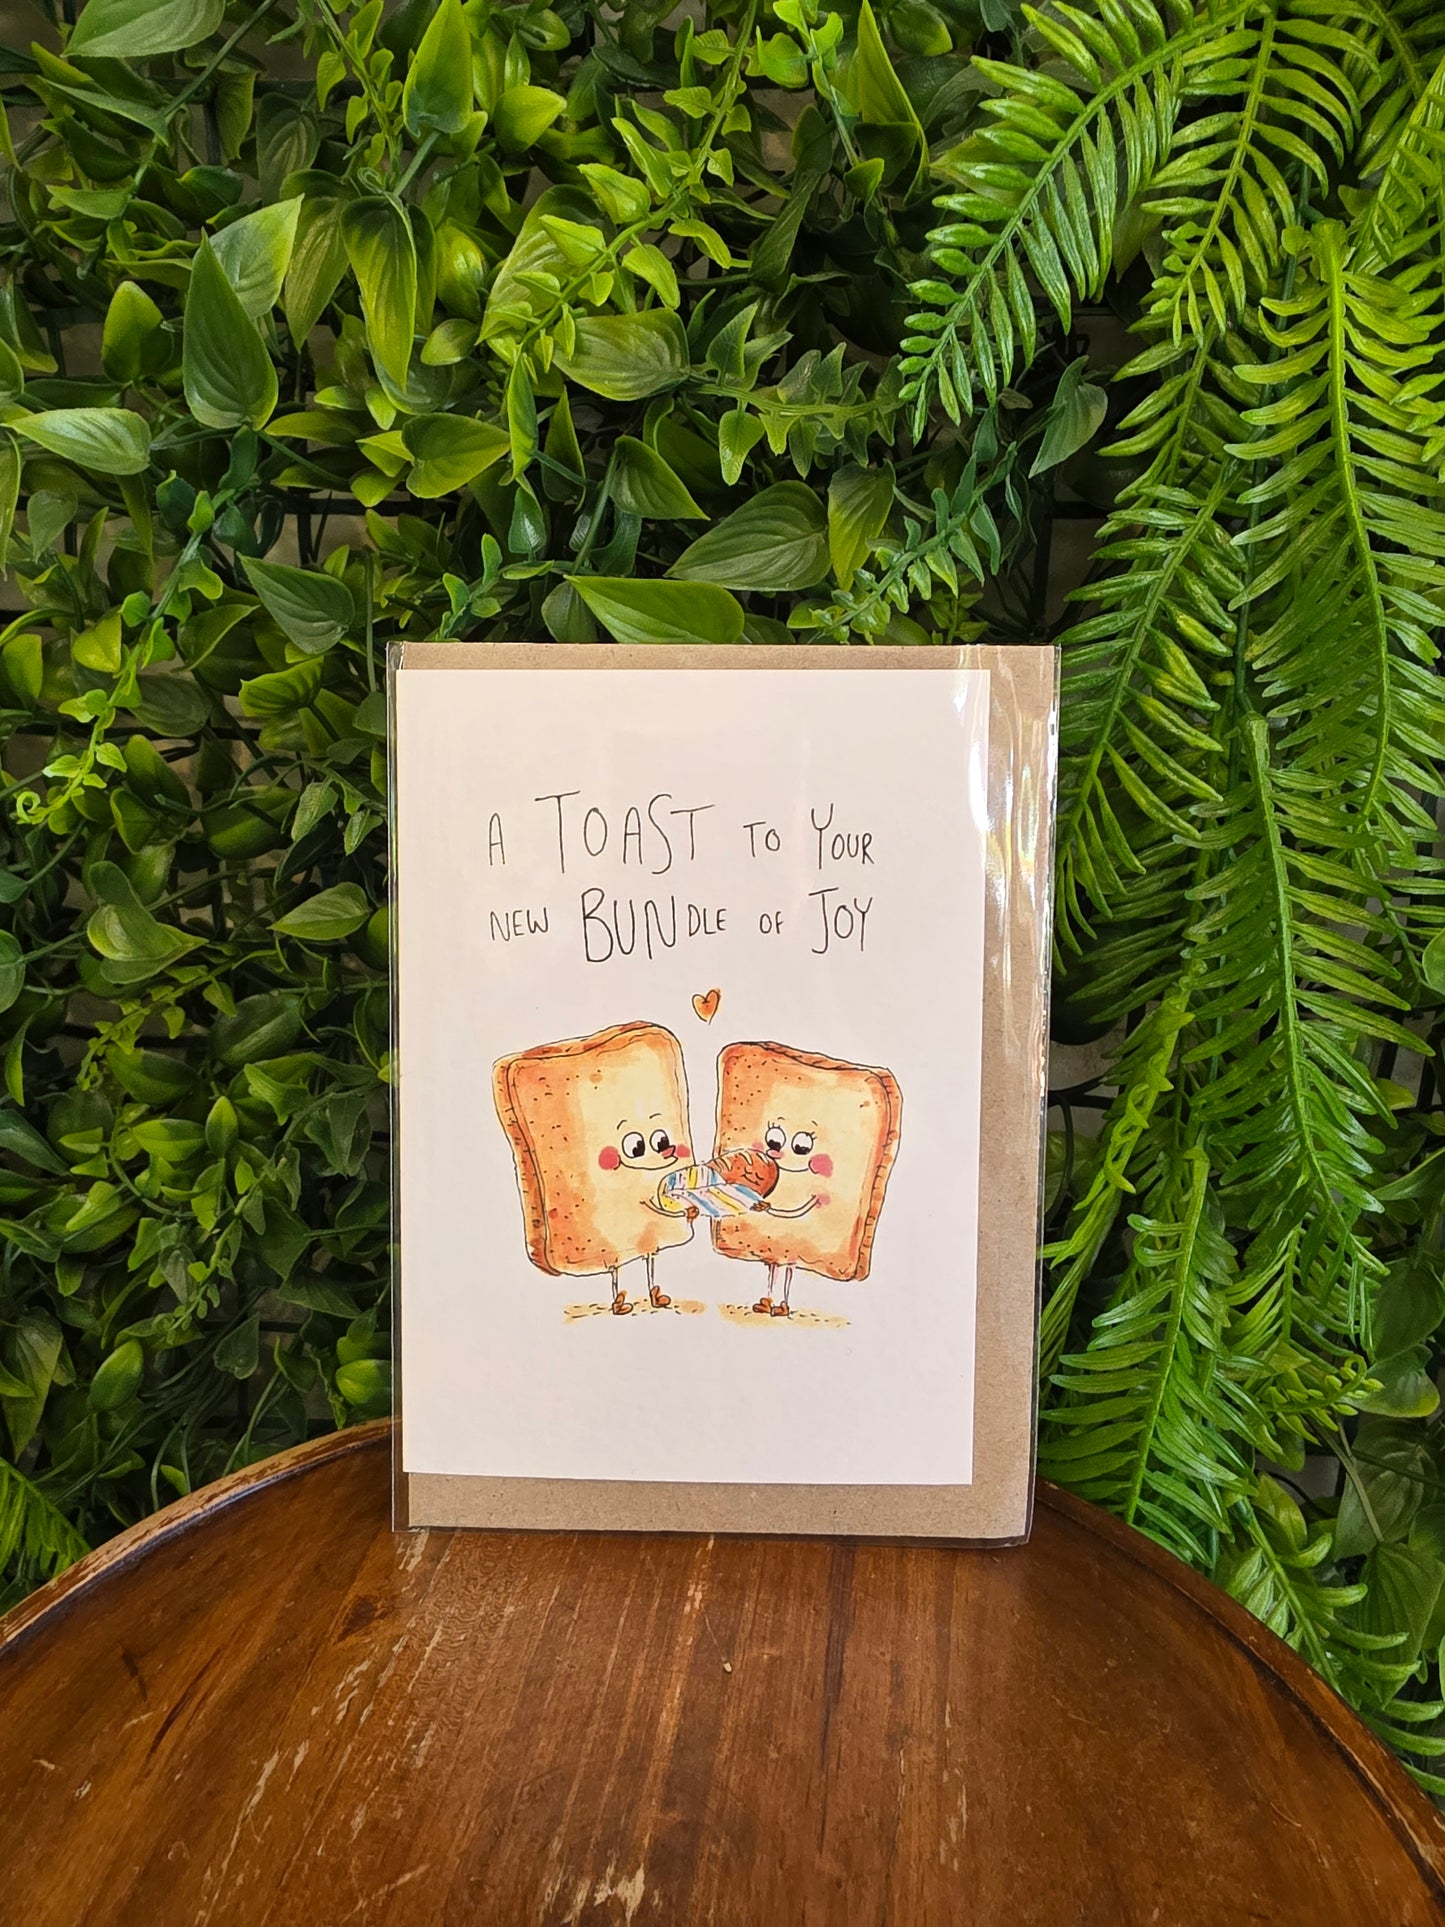 A TOAST TO YOUR
NEW BUNDLE OF JOY